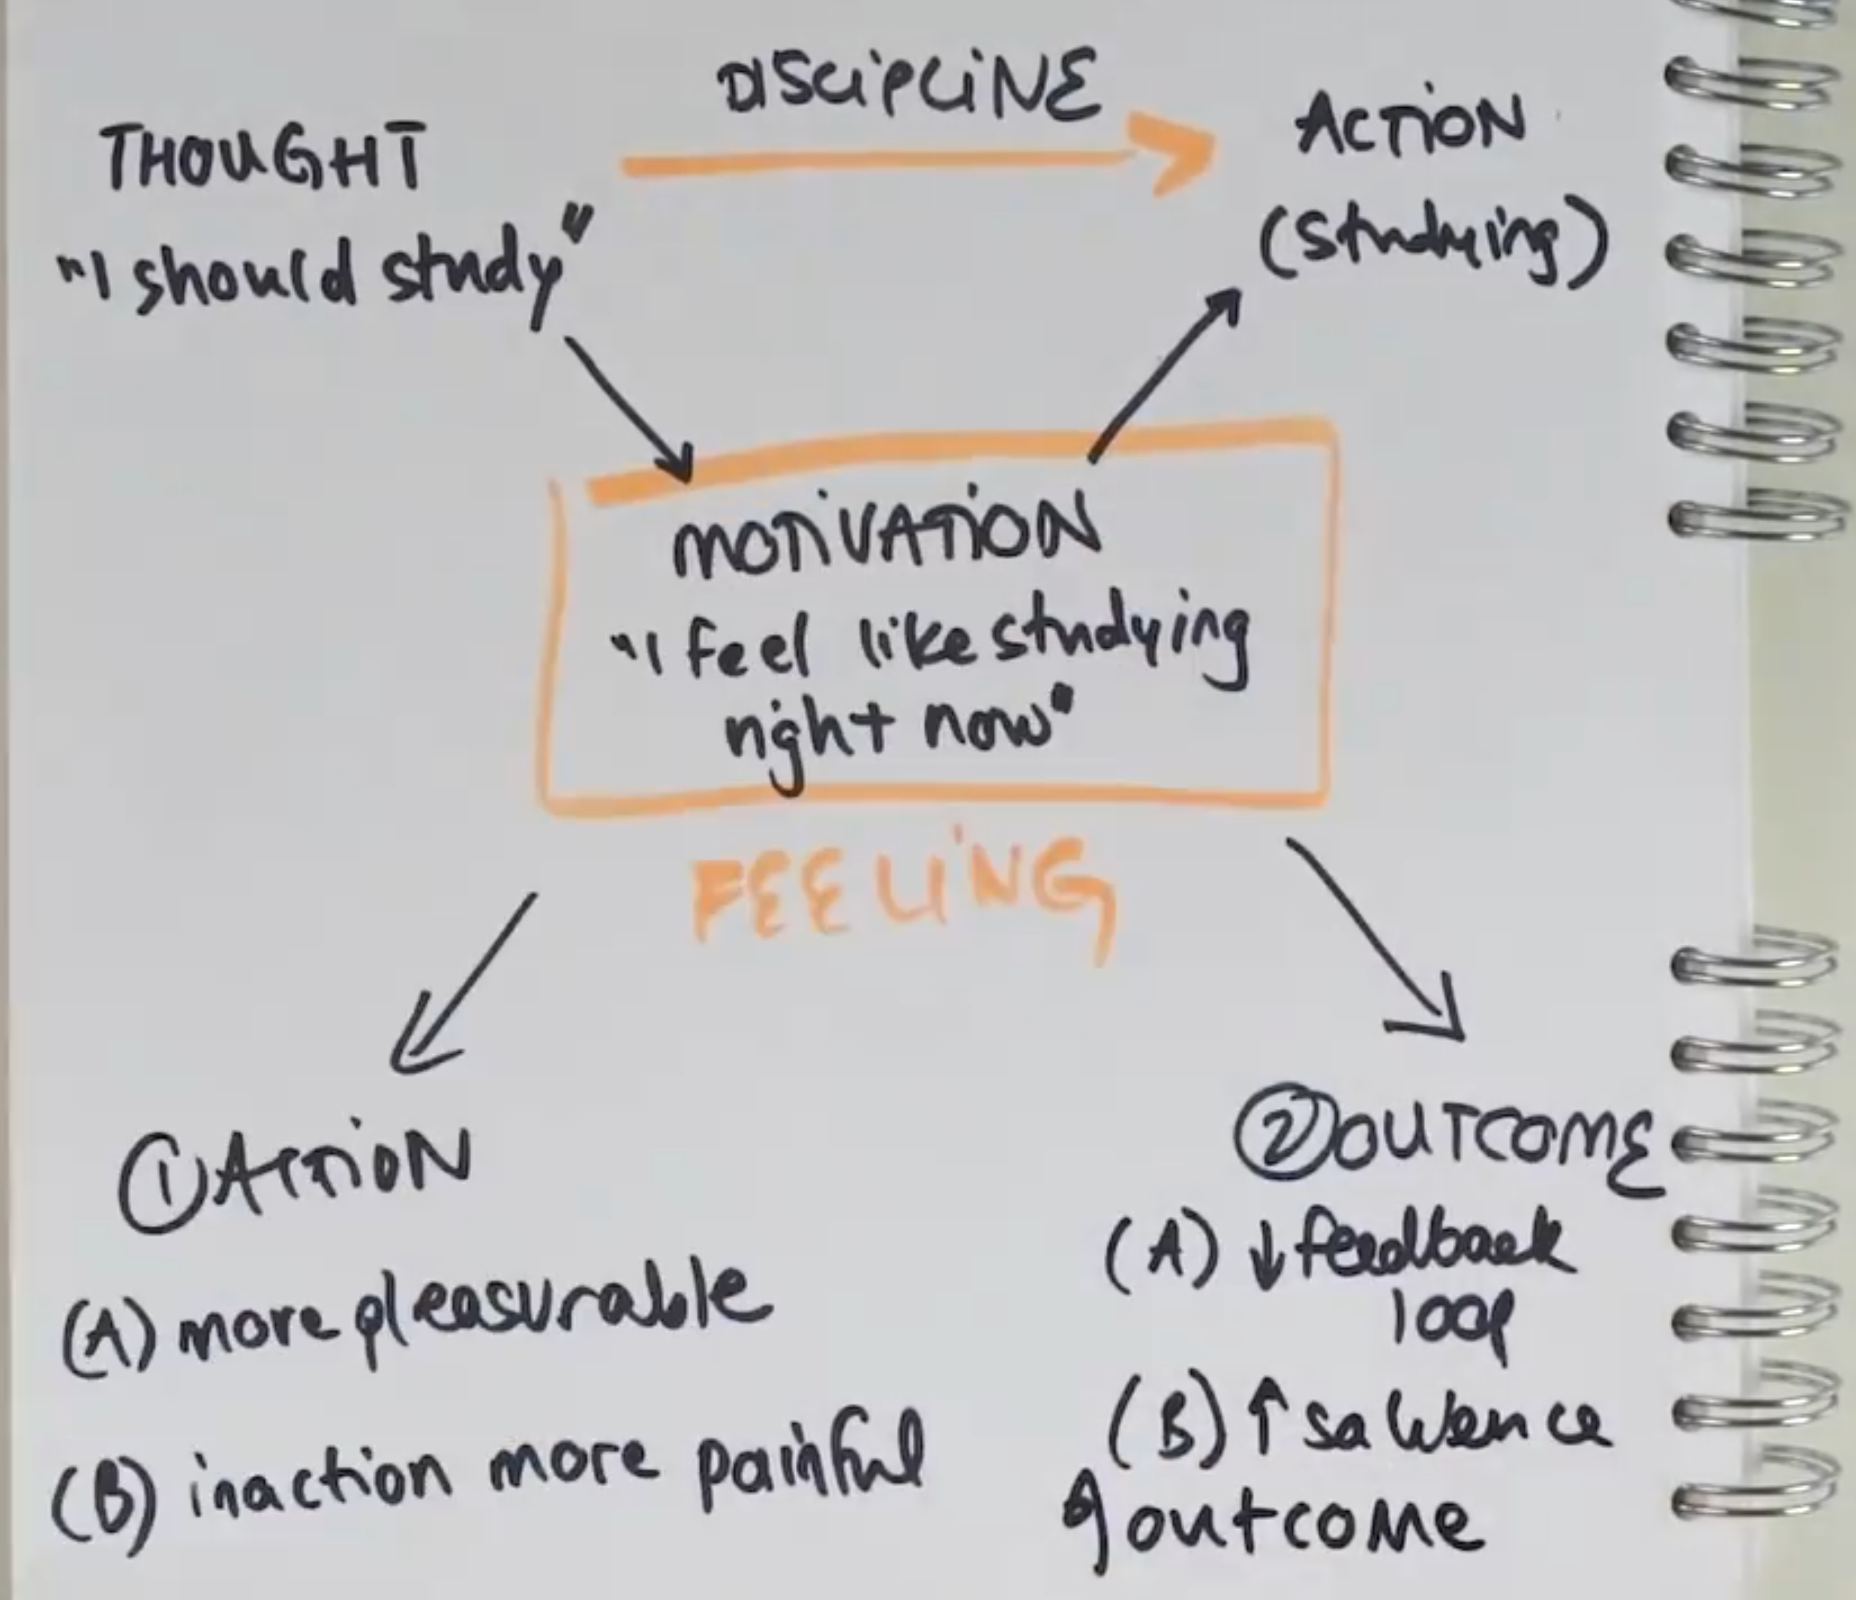 DISCIPLINE
THOUGHT
ACTION
"I should study"
(studying)
MOTIVATION
"I feel like studying
right now"
FEELING
① ACTION
(A) more pleasurable
(B) inaction more painful
② OUTCOME
(A) ↓ feedback
loop
(B) ↑ salience
of outcome